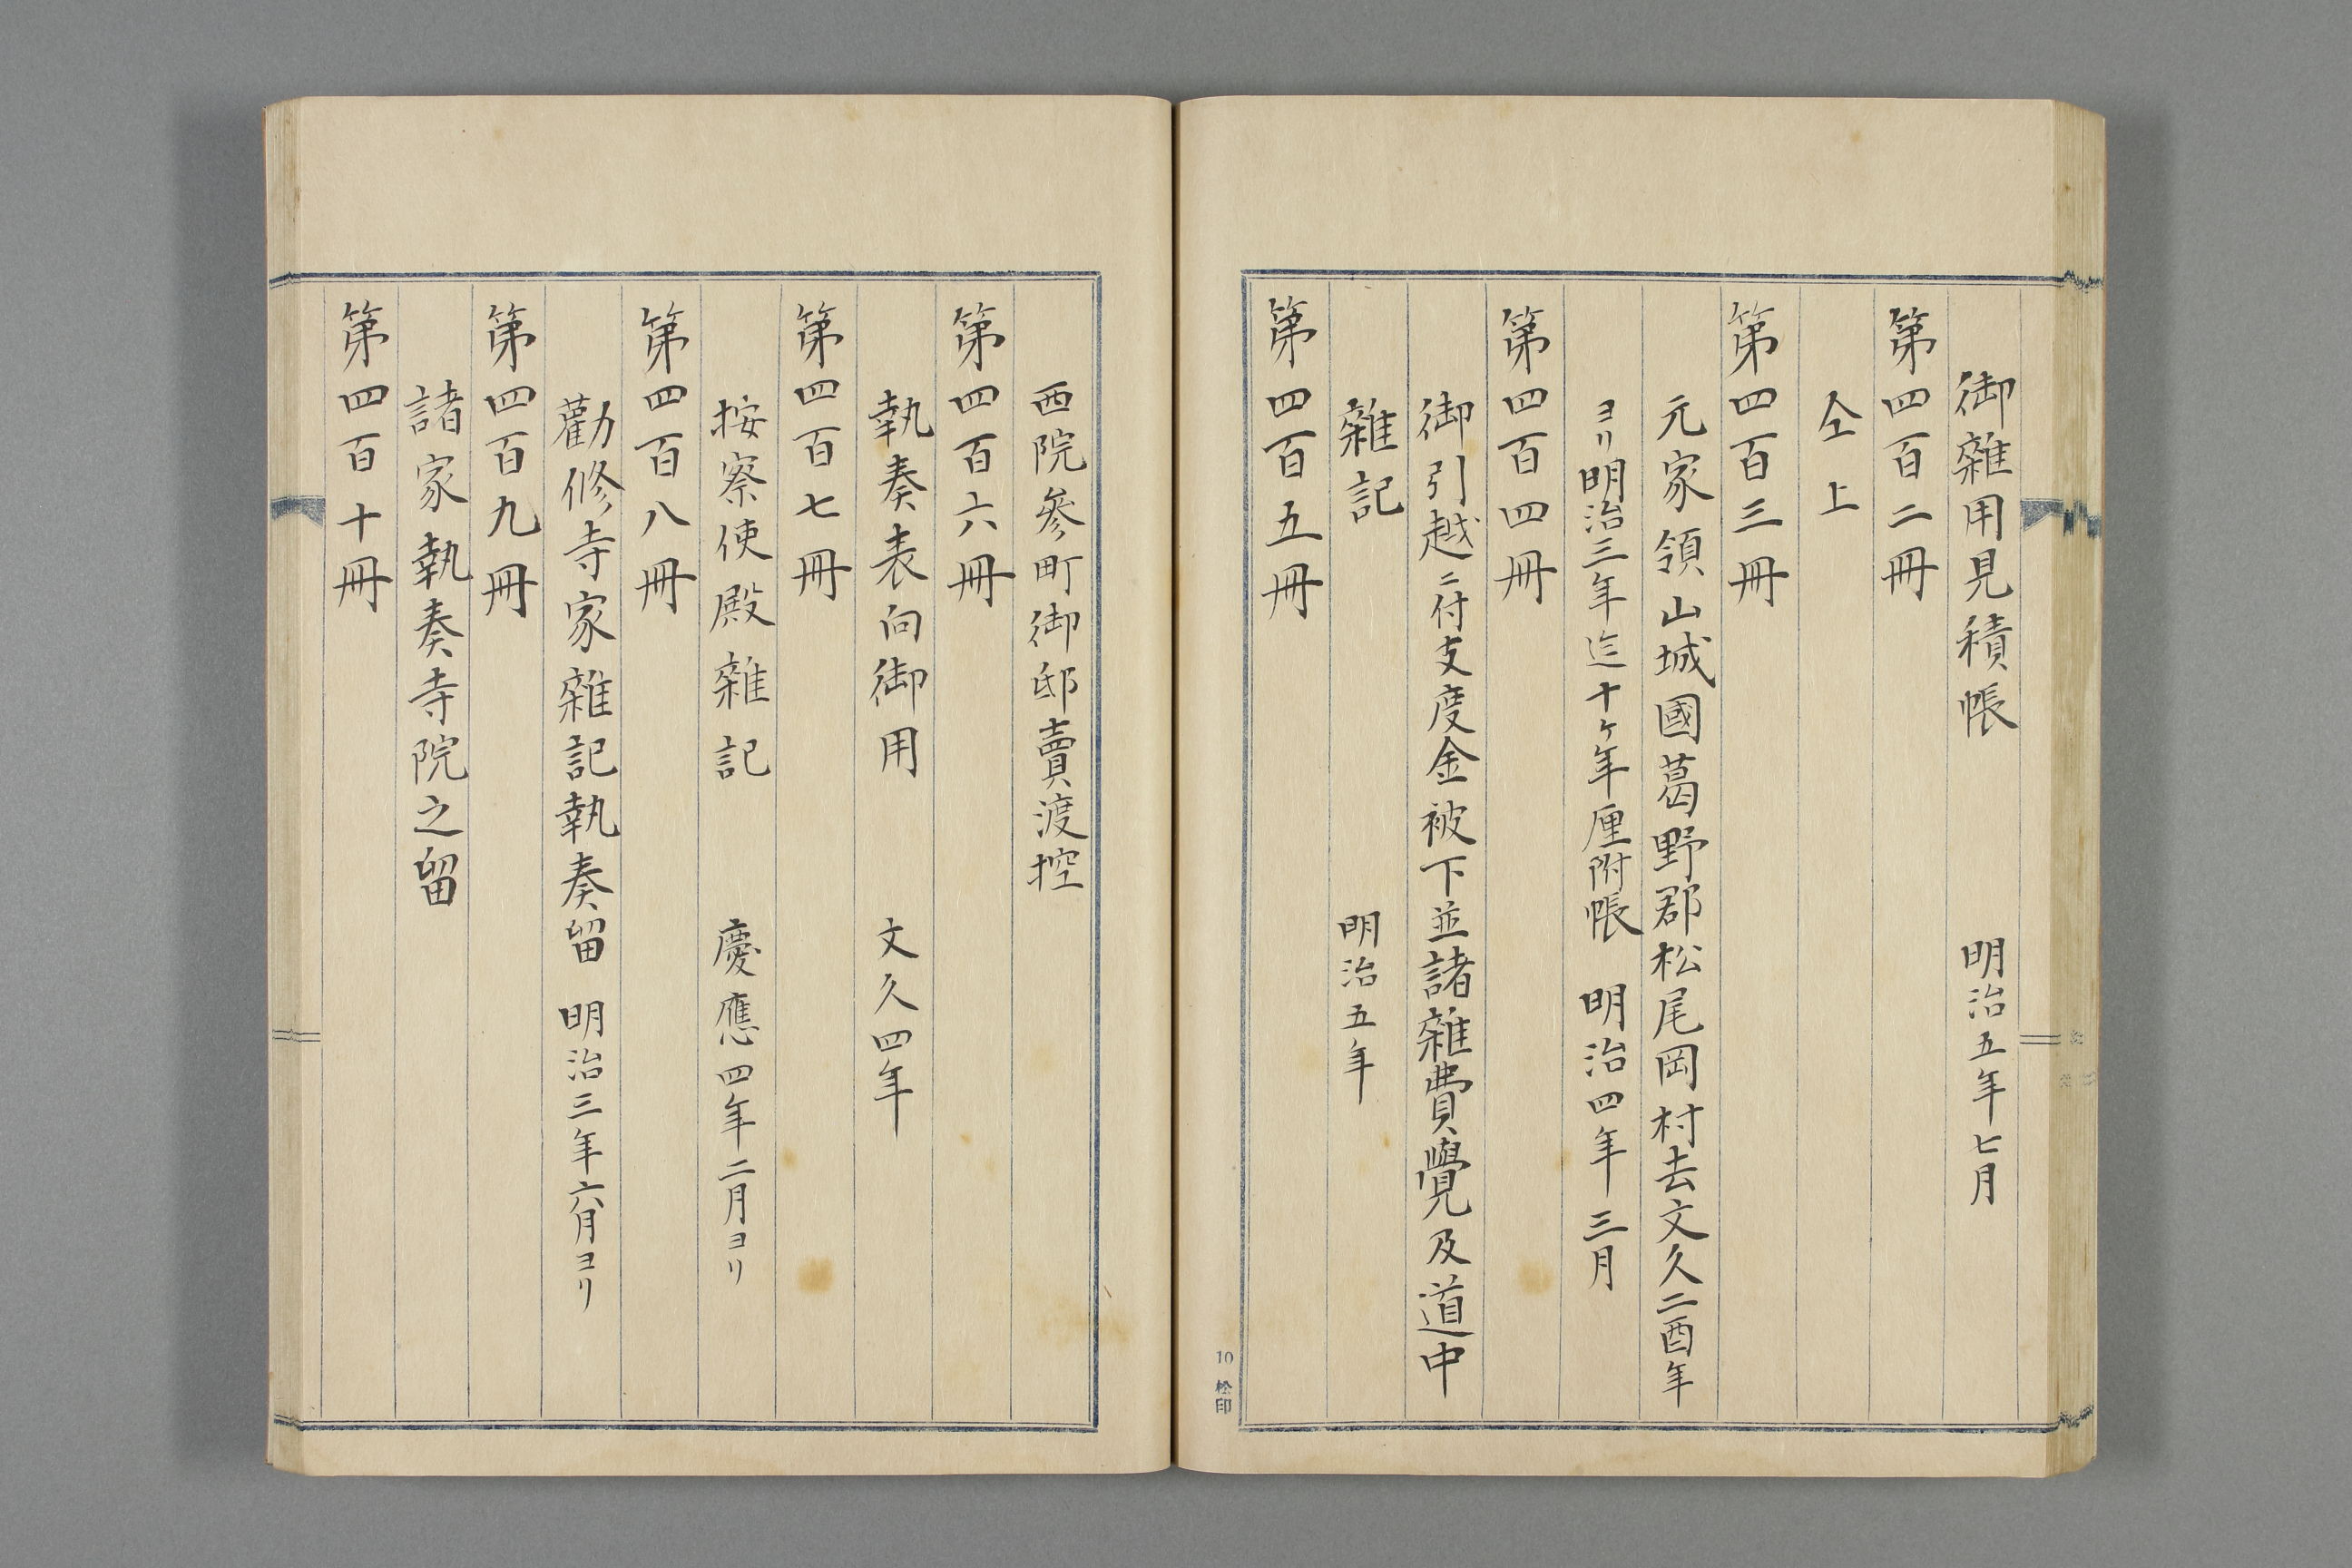 御雜用見積帳　明治五年七月
第四百二冊
仝上
第四百三冊
元家領山城國葛野郡松尾岡村去文久二酉年
ヨリ明治三年迄十ヶ年厘附帳　明治四年三月
第四百四冊
御引越ニ付支度金被下並諸雜費覺及道中
雜記　明治五年
第四百五冊
10 松印
西院參町御邸賣渡控
第四百六冊
執奏表向御用　文久四年
第四百七冊
按察使殿雜記　慶應四年二月ヨリ
第四百八冊
勸修寺家雜記執奏留　明治三年六月ヨリ
第四百九冊
諸家執奏寺院之留
第四百十冊